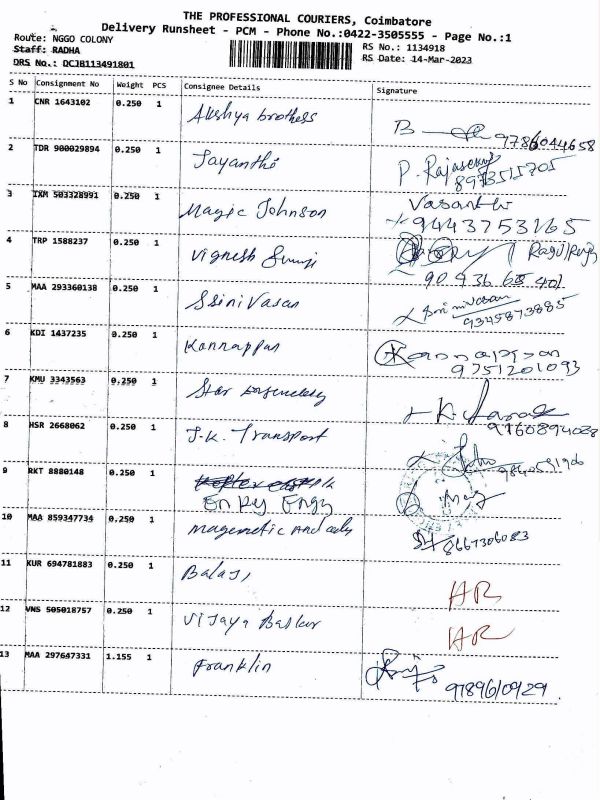 THE PROFESSIONAL COURIERS, Coimbatore
Delivery Runsheet - PCM - Phone No.:0422-3505555 - Page No.:1
Route: NGGO COLONY
RS No.: 1134918
Staff: RADHA
RS Date: 14-Mar-2023
DRS No.: DCJB113491801
S No Consignment No Weight PCS Consignee Details Signature
1 CNR 1643102 0.250 1 Akshya brothers
9786044658
2 TDR 900029894 0.250 1 Jayanthi P. Rajasekar
8973515705
3 IXM 503328991 0.250 1 Magic Johnson Vasanth
9443753165
4 TRP 1588237 0.250 1 Vignesh
90 9 36 68 401
5 MAA 293360138 0.250 1 Srinivasan Srinivasan
9345873885
6 KDI 1437235 0.250 1 Kannappan Kannappan
9751201093
7 KMU 3343563 0.250 1 Star
9160894028
8 HSR 2668062 0.250 1 J.K. Transport John
9840591906
9 RKT 8880148 0.250 1
En Key Engg
10 MAA 859347734 0.250 1 Magenetic And
8667306083
11 KUR 694781883 0.250 1 Balaji HR
12 VNS 505018757 0.250 1 Vijaya Baskar HR
13 MAA 297647331 1.155 1 Franklin
9789610929